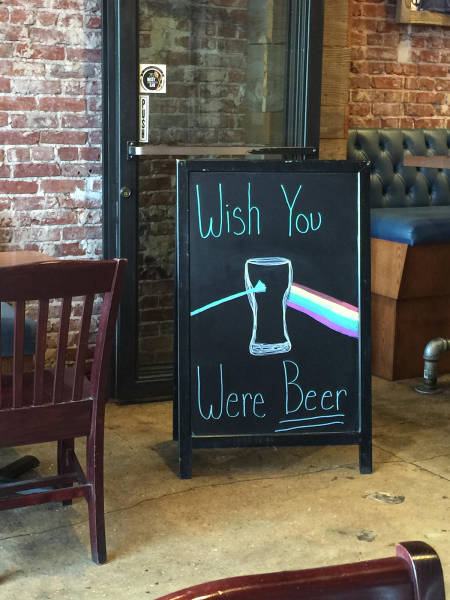 PUSH
Wish You
Were Beer